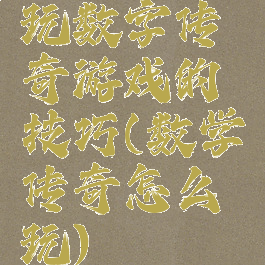 玩数字传
奇游戏的
技巧(数学
传奇怎么
玩)